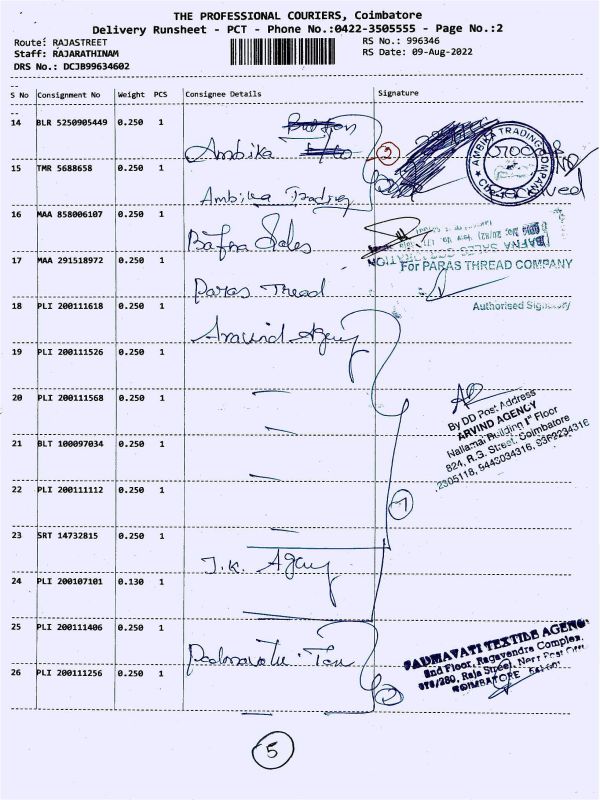 THE PROFESSIONAL COURIERS, Coimbatore
Delivery Runsheet - PCT - Phone No.:0422-3505555 - Page No.:2
Route: RAJASTREET RS No.: 996346
Staff: RAJARATHINAM RS Date: 09-Aug-2022
DRS No.: DCJB99634602
S No Consignment No Weight PCS Consignee Details Signature
14 BLR 5250905449 0.250 1 Ambika
AMBIKA TRADING COMPANY
15 TMR 5688658 0.250 1 Ambika Trading
2
16 MAA 858006107 0.250 1 Bafna Sales
BAFNA SALES CORPORATION
17 MAA 291518972 0.250 1 Paras Thread
For PARAS THREAD COMPANY
Authorised Signatory
18 PLI 200111618 0.250 1 Aravind Agency
19 PLI 200111526 0.250 1
20 PLI 200111568 0.250 1
By DD Post Address
ARVIND AGENCY
Nallamai Building 1st Floor
824, R.G. Street, Coimbatore
21 BLT 100097034 0.250 1
22 PLI 200111112 0.250 1
7
23 SRT 14732815 0.250 1
24 PLI 200107101 0.130 1 J.K. Agency
25 PLI 200111406 0.250 1
26 PLI 200111256 0.250 1
PADMAVATI TEXTILE AGENC
2nd Floor, Ragavendra Complex,
Raja Street, Near Post Office
COIMBATORE
5